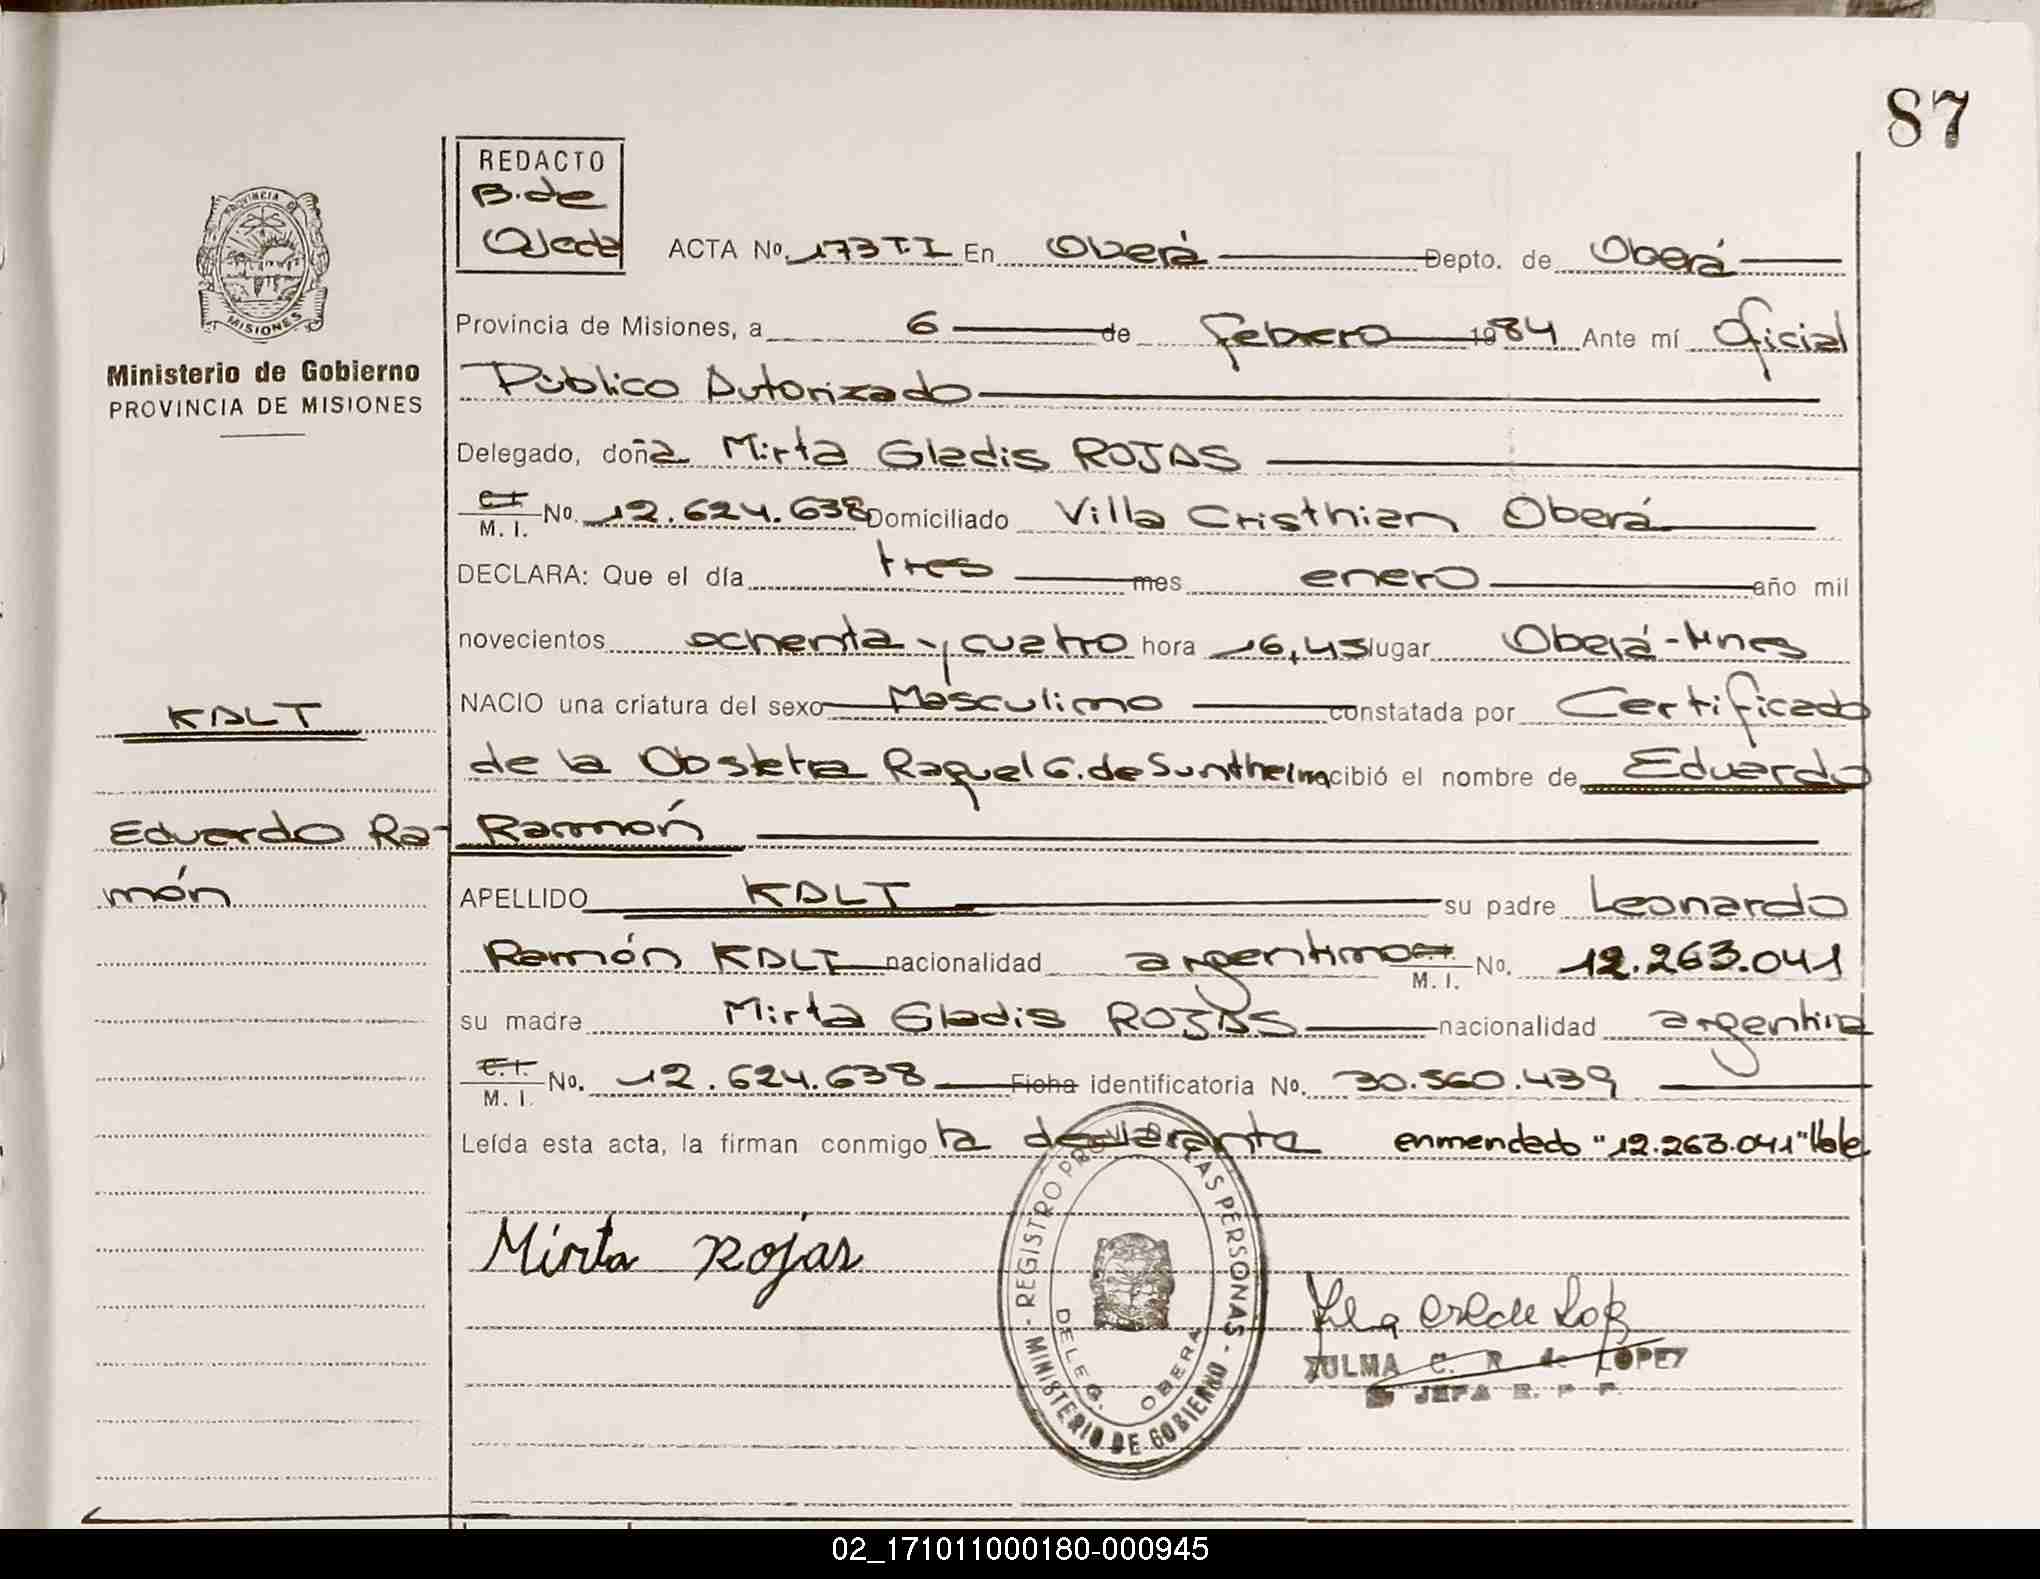 87
REDACTO
B. de
Ojeda
PROVINCIA DE
MISIONES
Ministerio de Gobierno
PROVINCIA DE MISIONES
ACTA No. 173 T.I En Oberá Depto. de Oberá
Provincia de Misiones, a 6 de febrero 1984 Ante mí Oficial
Público Autorizado
Delegado, doña Mirta Gladis ROJAS
C.I. M. I. No. 12.624.638 Domiciliado Villa Cristhian Oberá
DECLARA: Que el día tres mes enero año mil
novecientos ochenta y cuatro hora 16,45 lugar Oberá-Mnes
NACIO una criatura del sexo Masculino constatada por Certificado
de la Obstetra Raquel G. de Suntheim recibió el nombre de Eduardo
Ramón
APELLIDO KALT su padre Leonardo
Ramón KALT nacionalidad argentino C.I. M. I. No. 12.263.041
su madre Mirta Gladis ROJAS nacionalidad argentina
C.I. M. I. No. 12.624.638 Ficha identificatoria No. 30.560.439
Leída esta acta, la firman conmigo la declaranta enmendado "12.263.041" Vale
KALT
Eduardo Ra-
món
Mirta Rojas
REGISTRO PROV. DE LAS PERSONAS - MINISTERIO DE GOBIERNO -
DELEG. OBERA
ZULMA C. R. de LOPEZ
JEFA R. P. P.
02_171011000180-000945